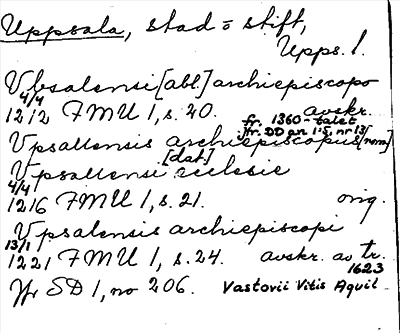 Uppsala, stad = stift,
Upps. l.
Vbsalensi [abl.] archiepiscopo
4/4 1212 FMU 1, s. 20. avskr.
fr. 1360-talet
jfr. DD an 1:5, nr 13
Vpsallensis archiepiscopus [nom]
Vpsallensi [dat.] ecclesie
4/4 1216 FMU 1, s. 21. orig.
Vpsalensis archiepiscopi
13/1 1221 FMU 1, s. 24. avskr. av tr.
1623
Jfr SD 1, no 206. Vastovii Vitis Aquil